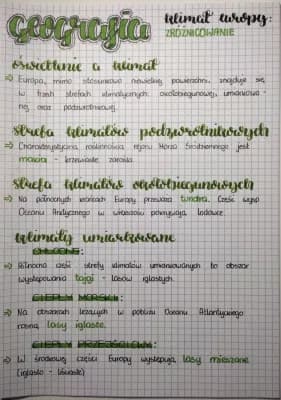 Geografia
klimat europy:
ZRÓŻNICOWANIE
oświetlenie a klimat
⇒ Europa, mimo stosunkowo niewielkiej powierzchni, znajduje się
w trzech strefach klimatycznych: okołobiegunowej, umiarkowa-
nej oraz podzwrotnikowej.
strefa klimatów podzwrotnikowych
⇒ Charakterystyczną roślinnością rejonu Morza Śródziemnego jest
makia - krzewiaste zarośla.
strefa klimatów okołobiegunowych
⇒ Na północnych krańcach Europy przeważa tundra. Część wysp
Oceanu Arktycznego w większości pokrywają lodowce.
klimaty umiarkowane
CHŁODNE:
⇒ Północna część strefy klimatów umiarkowanych to obszar
występowania tajgi - lasów iglastych.
CIEPŁY MORSKI:
⇒ Na obszarach leżących w pobliżu Oceanu Atlantyckiego
rosną lasy iglaste.
CIEPŁY PRZEJŚCIOWY:
⇒ W środkowej części Europy występują lasy mieszane
(iglasto - liściaste)